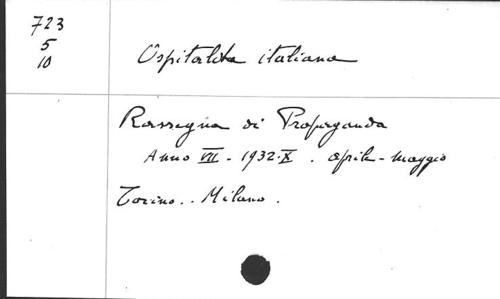 723
5
10
Ospitalità italiana
Rassegna di Propaganda
Anno VII - 1932 - X . Aprile - Maggio
Torino - Milano .